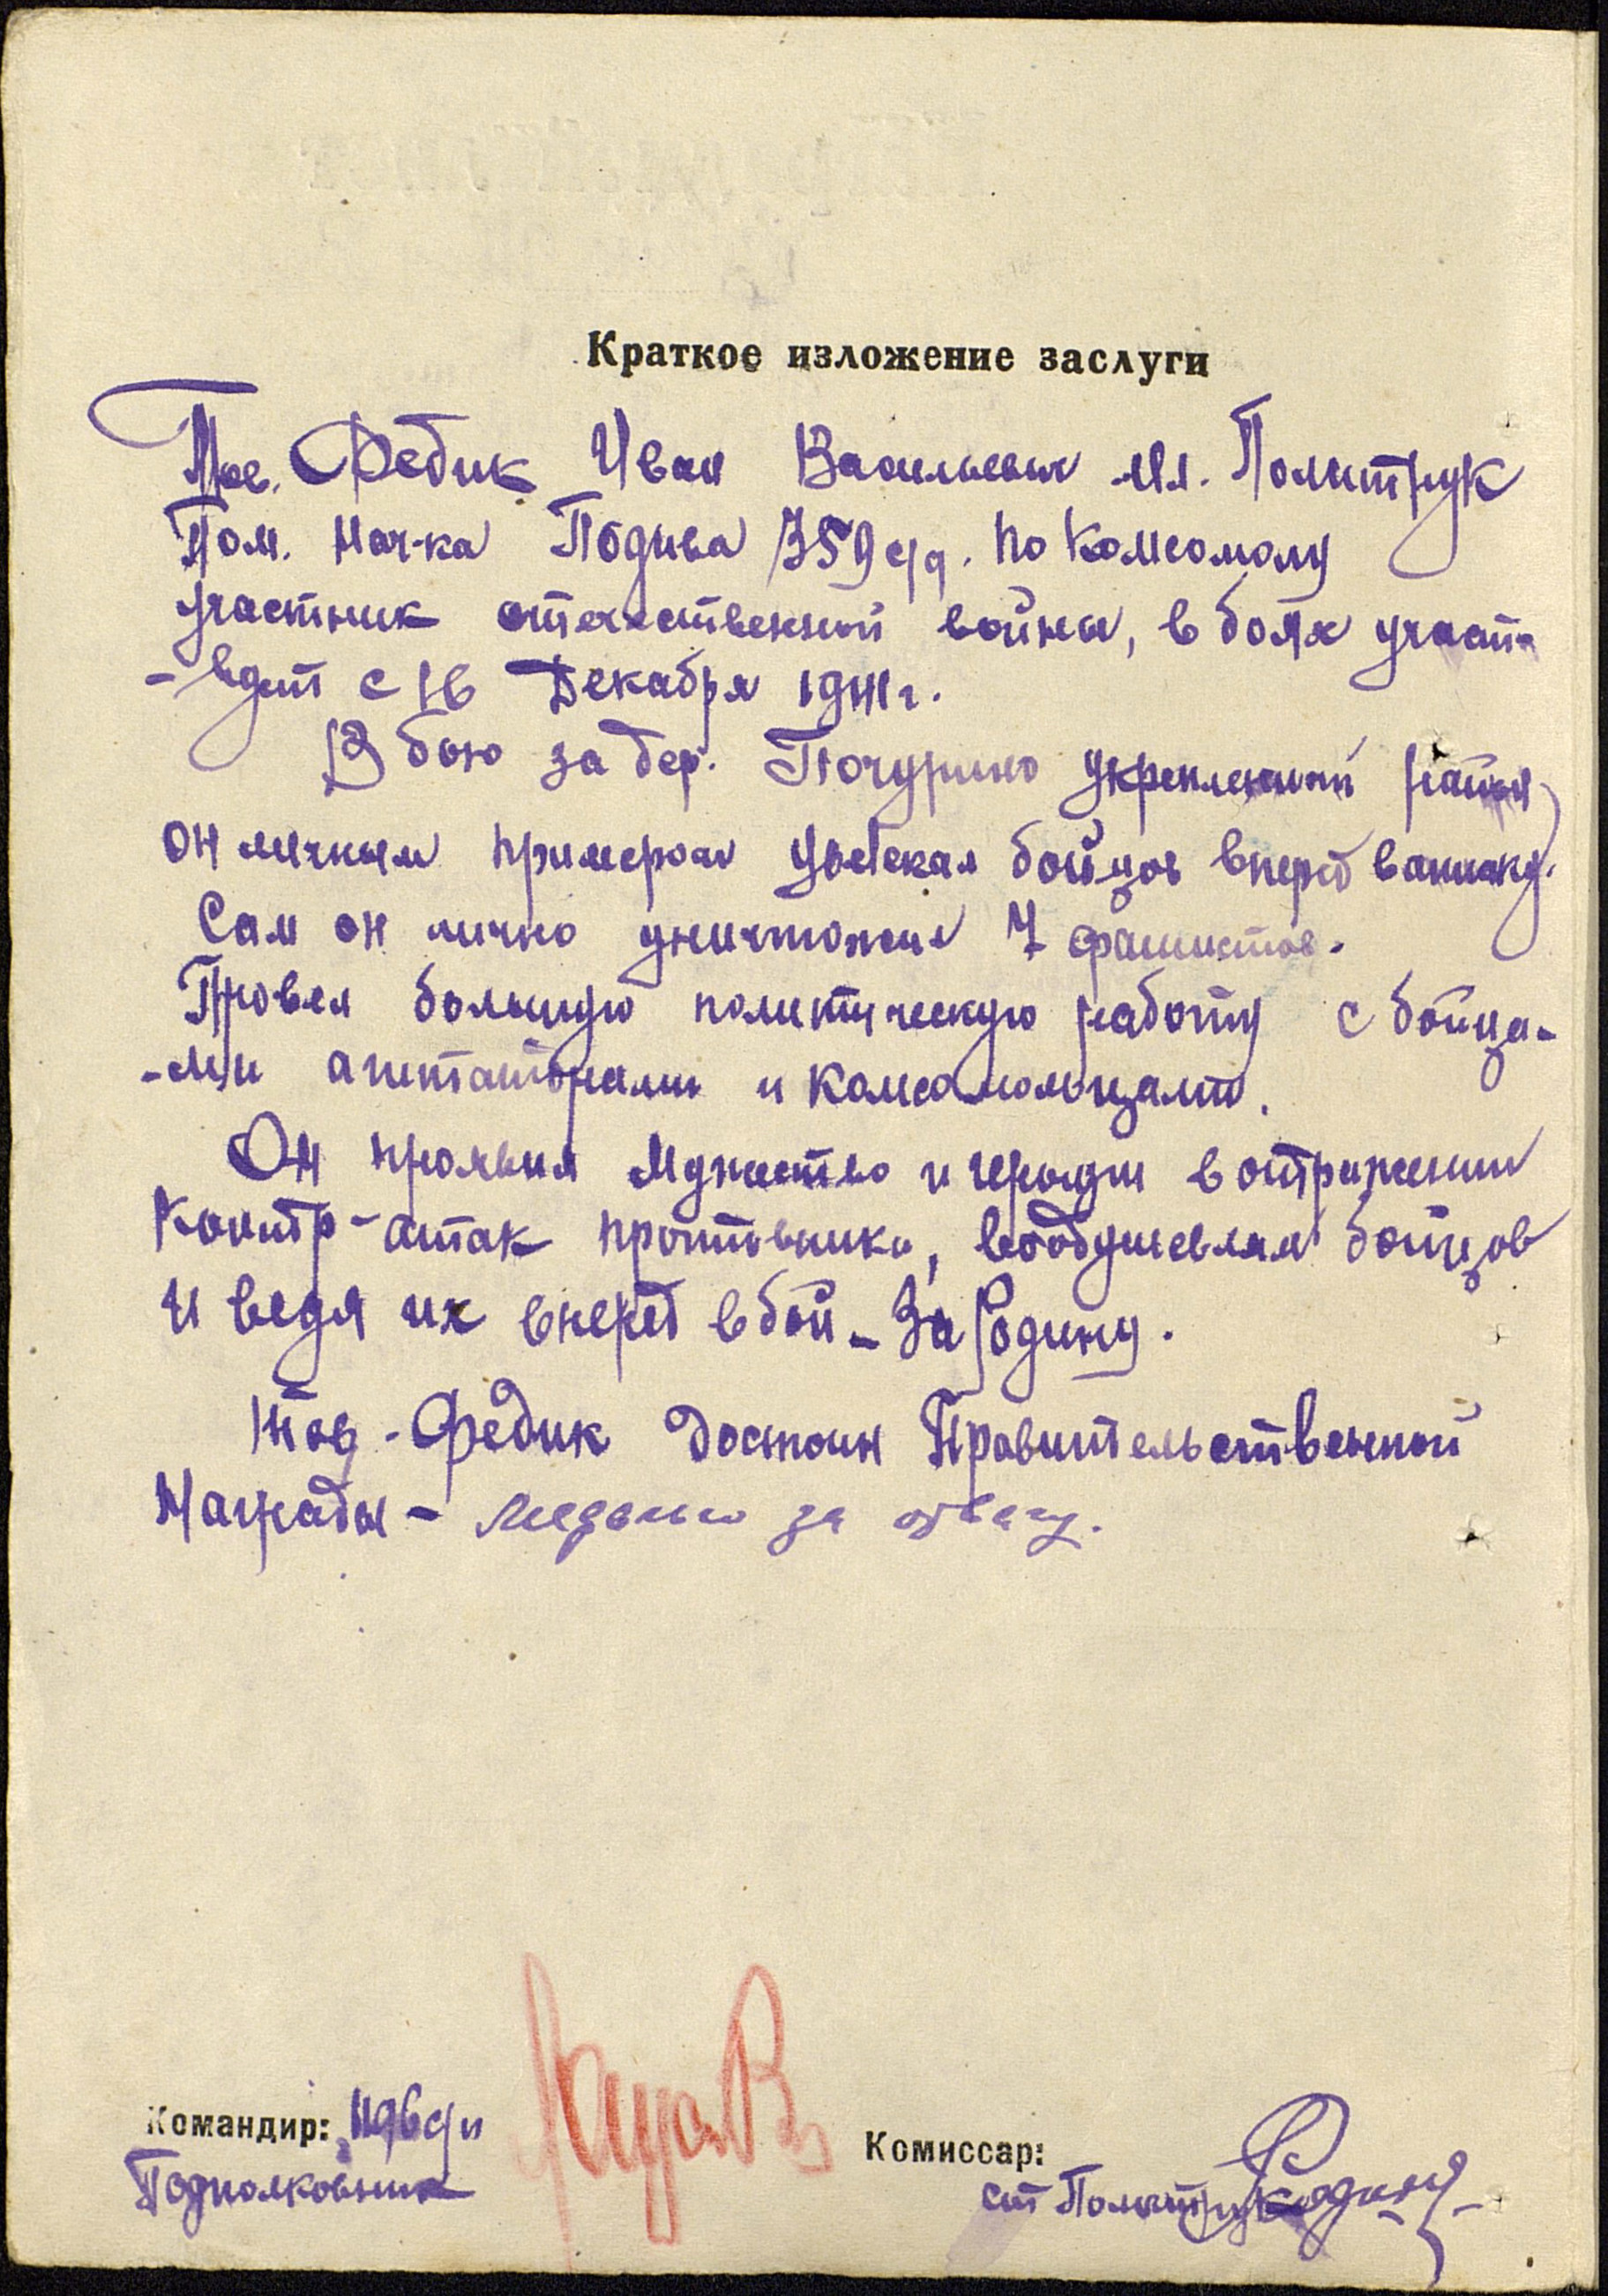 Краткое изложение заслуги
Тов. Федик Иван Васильевич мл. Политрук
Пом. Нач-ка Подива 359 сд. по Комсомолу
участник отечественной войны, в боях участ-
-вует с 16 Декабря 1941 г.
В бою за дер. Почурино укрепленный район
он личным примером увлекал бойцов вперед в атаку.
Сам он лично уничтожил 7 фашистов.
Провел большую политическую работу с бойца-
-ми агитаторами и комсомольцами.
Он проявил мужество и в отражении
Контр-атак противника, воодушевлял бойцов
и ведя их вперед в бой - За Родину.
Тов. Федик достоин Правительственной
Награды - медалью за отвагу.
Командир: 1196 сп
Подполковник
Комиссар:
ст Политрук